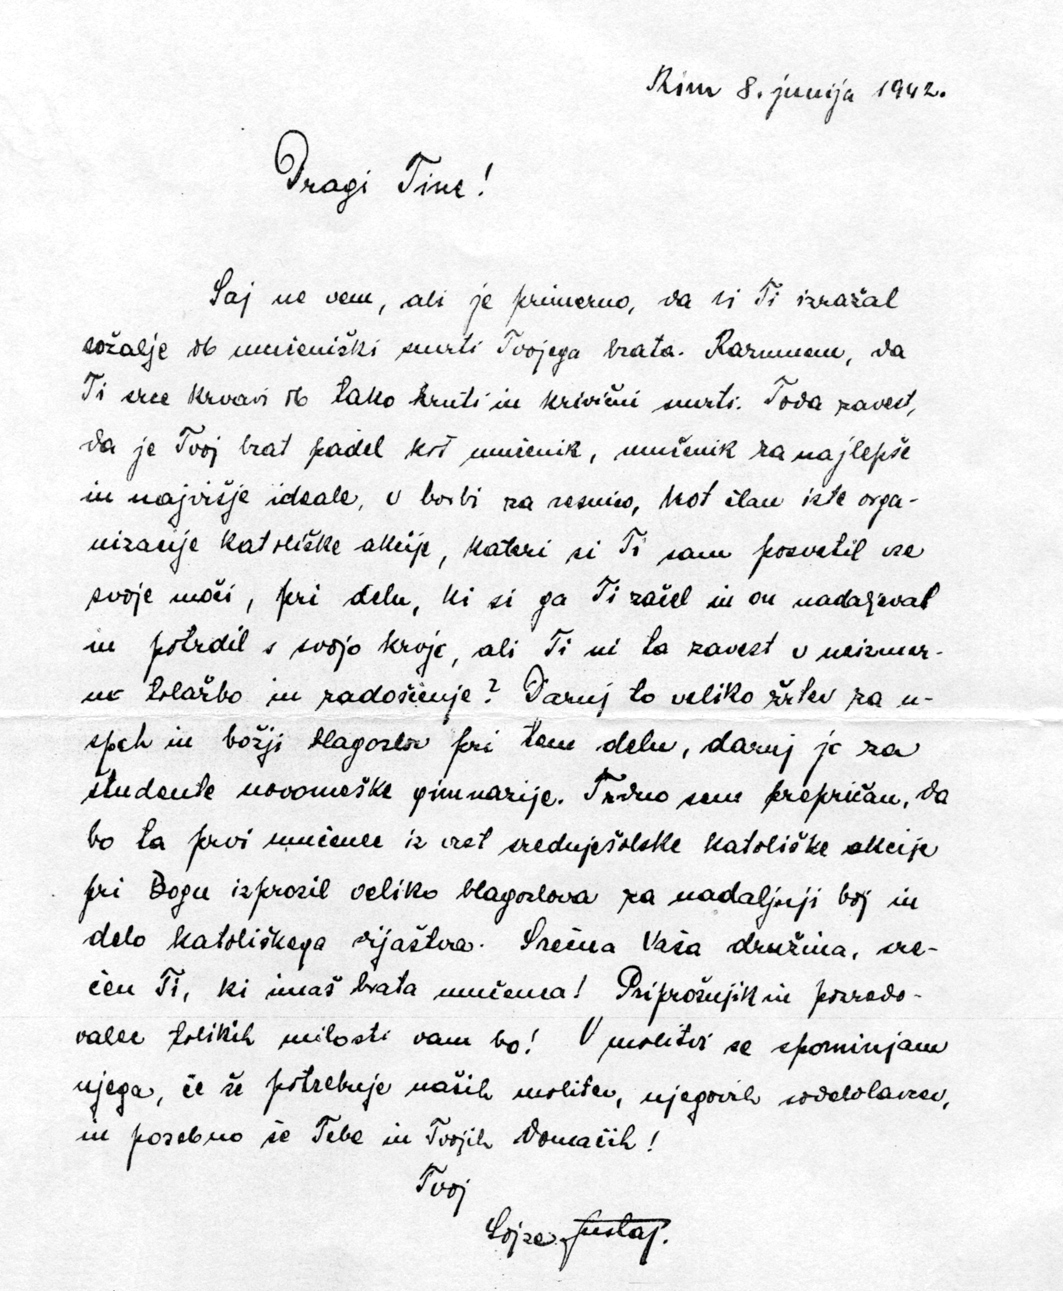 Rim 8. junija 1942.
Dragi Tine!
Saj ne vem, ali je primerno, da bi Ti izražal
sožalje ob mučeniški smrti Tvojega brata. Razumem, da
Ti srce krvavi ob tako kruti in krivični smrti. Toda zavest,
da je Tvoj brat padel kot mučenik, mučenik za najlepše
in najvišje ideale, v borbi za resnico, kot član iste orga-
nizacije katoliške akcije, kateri si Ti sam posvetil vse
svoje moči, pri delu, ki si ga Ti začel in on nadaljeval
in potrdil s svojo krvjo, ali Ti ni ta zavest v neizmer-
no tolažbo in zadoščenje? Daruj to veliko žrtev za u-
speh in božji blagoslov pri tem delu, daruj jo za
študente novomeške gimnazije. Trdno sem prepričan, da
bo ta prvi mučenec iz vrst srednješolske katoliške akcije
pri Bogu izprosil veliko blagoslova za nadaljnji boj in
delo katoliškega dijaštva. Srečna Vaša družina, sre-
čen Ti, ki imaš brata mučenca! Priprošnjik in posredo-
valec tolikih milosti vam bo! V molitvi se spominjam
njega, če še potrebuje naših molitev, njegovih sodelavcev,
in posebno še Tebe in Tvojih domačih!
Tvoj
Lojze